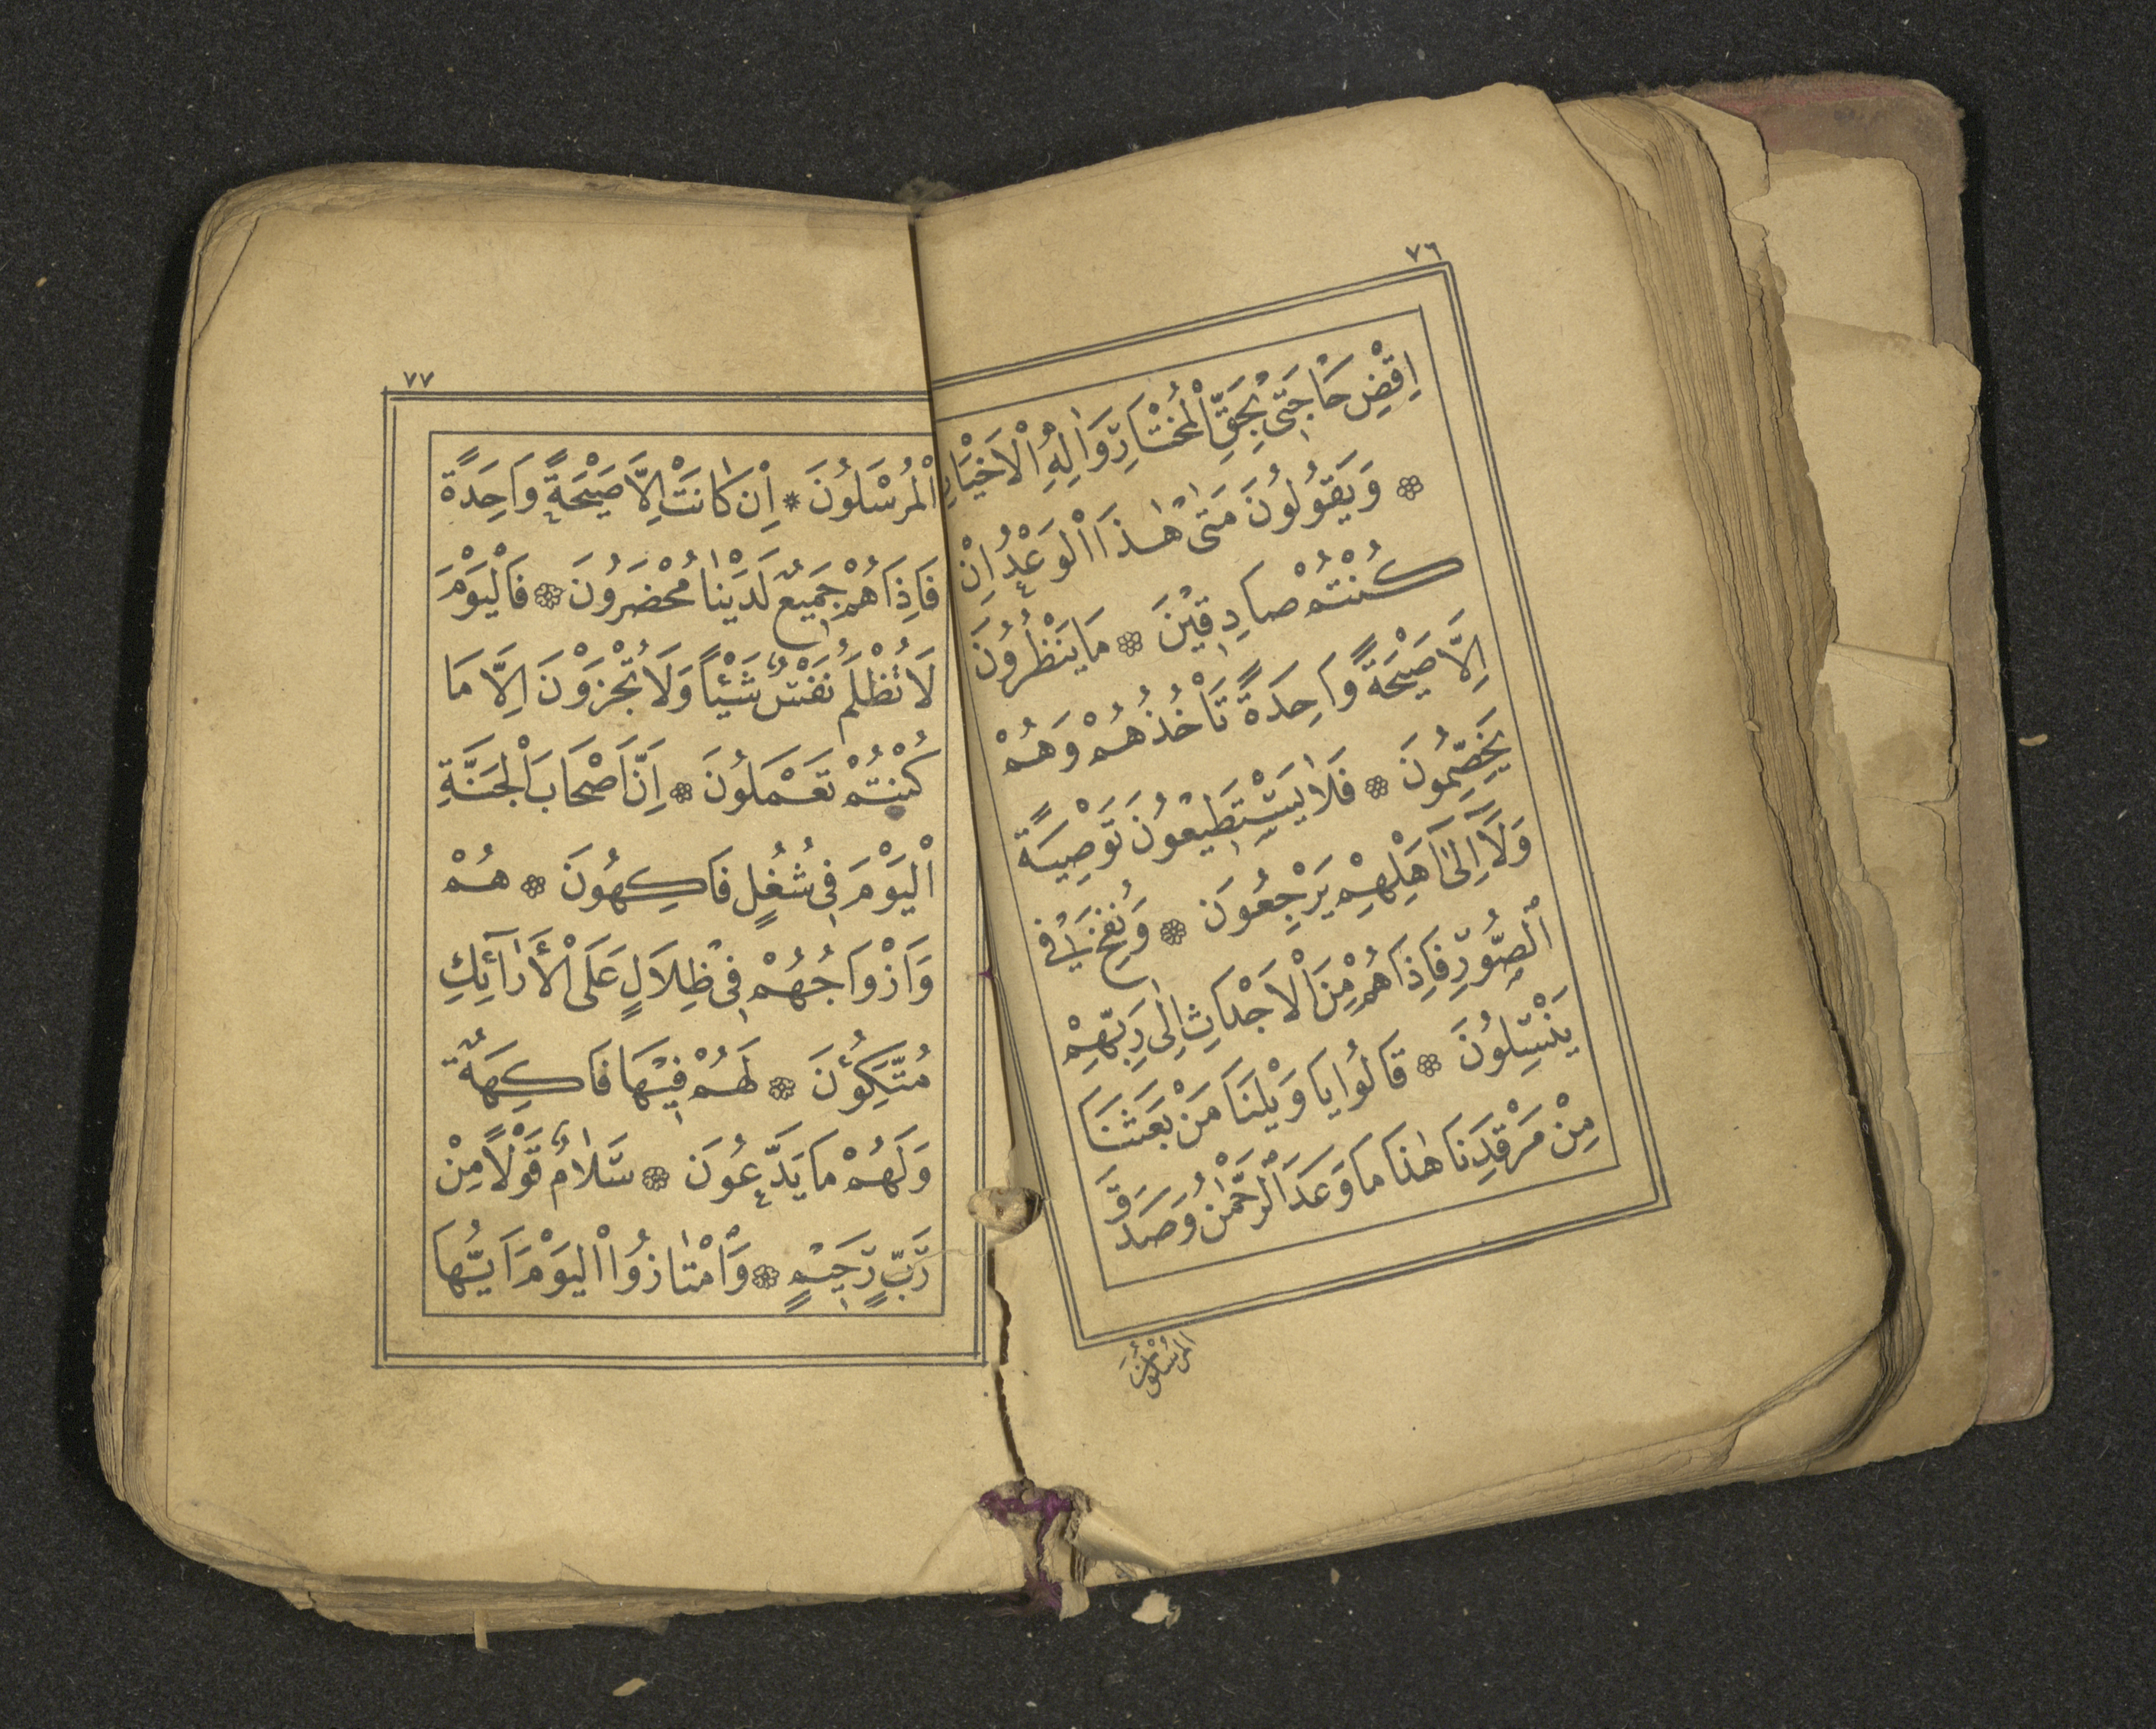 ٧٦
اِقْضِ حَاجَتى بِحَقِّ الْمُخْتَارِ وَاٰلِهِ الْاَخْيَارِ
۞ وَيَقُولُونَ مَتٰى هٰذَا الْوَعْدُ اِنْ
كُنْتُمْ صَادِقِيْنَ ۞ مَا يَنْظُرُونَ
اِلَّا صَيْحَةً وَاحِدَةً تَأْخُذُهُمْ وَهُمْ
يَخِصِّمُونَ ۞ فَلَا يَسْتَطِيعُونَ تَوْصِيَةً
وَلَآ اِلٰٓى اَهْلِهِمْ يَرْجِعُونَ ۞ وَنُفِخَ فِي
الصُّوْرِ فَاِذَا هُمْ مِنَ الْاَجْدَاثِ اِلٰى رَبِّهِمْ
يَنْسِلُونَ ۞ قَالُوا يَا وَيْلَنَا مَنْ بَعَثَنَا
مِنْ مَرْقَدِنَا هٰذَا مَا وَعَدَ الرَّحْمٰنُ وَصَدَقَ
الْمُرْسَلُونَ
٧٧
الْمُرْسَلُونَ * اِنْ كَانَتْ اِلَّا صَيْحَةً وَاحِدَةً
فَاِذَا هُمْ جَمِيعٌ لَدَيْنَا مُحْضَرُونَ ۞ فَالْيَوْمَ
لَا تُظْلَمُ نَفْسٌ شَيْئًا وَلَا تُجْزَوْنَ اِلَّا مَا
كُنْتُمْ تَعْمَلُونَ ۞ اِنَّ اَصْحَابَ الْجَنَّةِ
الْيَوْمَ فِى شُغُلٍ فَاكِهُونَ ۞ هُمْ
وَاَزْوَاجُهُمْ فِى ظِلَالٍ عَلَى الْأَرَآئِكِ
مُتَّكِؤُنَ ۞ لَهُمْ فِيْهَا فَاكِهَةٌ
وَلَهُمْ مَا يَدَّعُونَ ۞ سَلَامٌ قَوْلًا مِنْ
رَبٍّ رَحِيْمٍ ۞ وَامْتَازُوا الْيَوْمَ اَيُّهَا